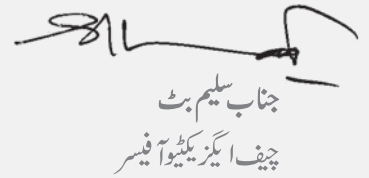 جناب سلیم بٹ
چیف ایگزیکٹیو آفیسر